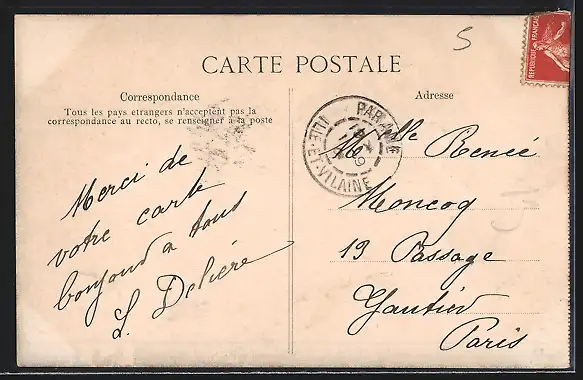 5
REPUBLIQUE FRANÇAISE
CARTE POSTALE
Correspondance
Tous les pays etrangers n'acceptent pas la
correspondance au recto, se renseigner à la poste
Merci de
votre carte
bonjour à tous
L. Delière
Adresse
PARAMÉ
ILLE-ET-VILAINE
Mlle Renée
Moncoq
19 Passage
Gautier
Paris